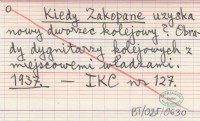 Kiedy Zakopane uzyska
nowy dworzec kolejowy? Obra-
dy dygnitarzy kolejowych z
miejscowemi władzami.
1937. — IKC nr 127.
BT/02F/9630